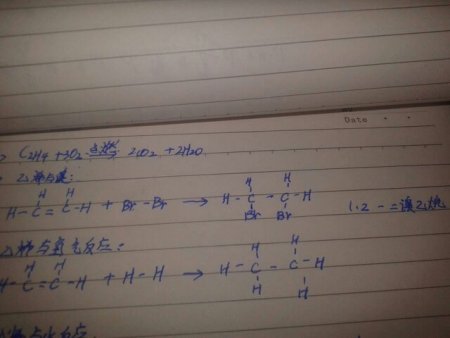 Date
C2H4 + 3O2 点燃 2CO2 + 2H2O
乙烯与溴:
H H
H-C=C-H + Br-Br → H-C-C-H
H H
Br Br
1.2-二溴乙烷
乙烯与氢气反应:
H H
H-C=C-H + H-H → H-C-C-H
H H
H H